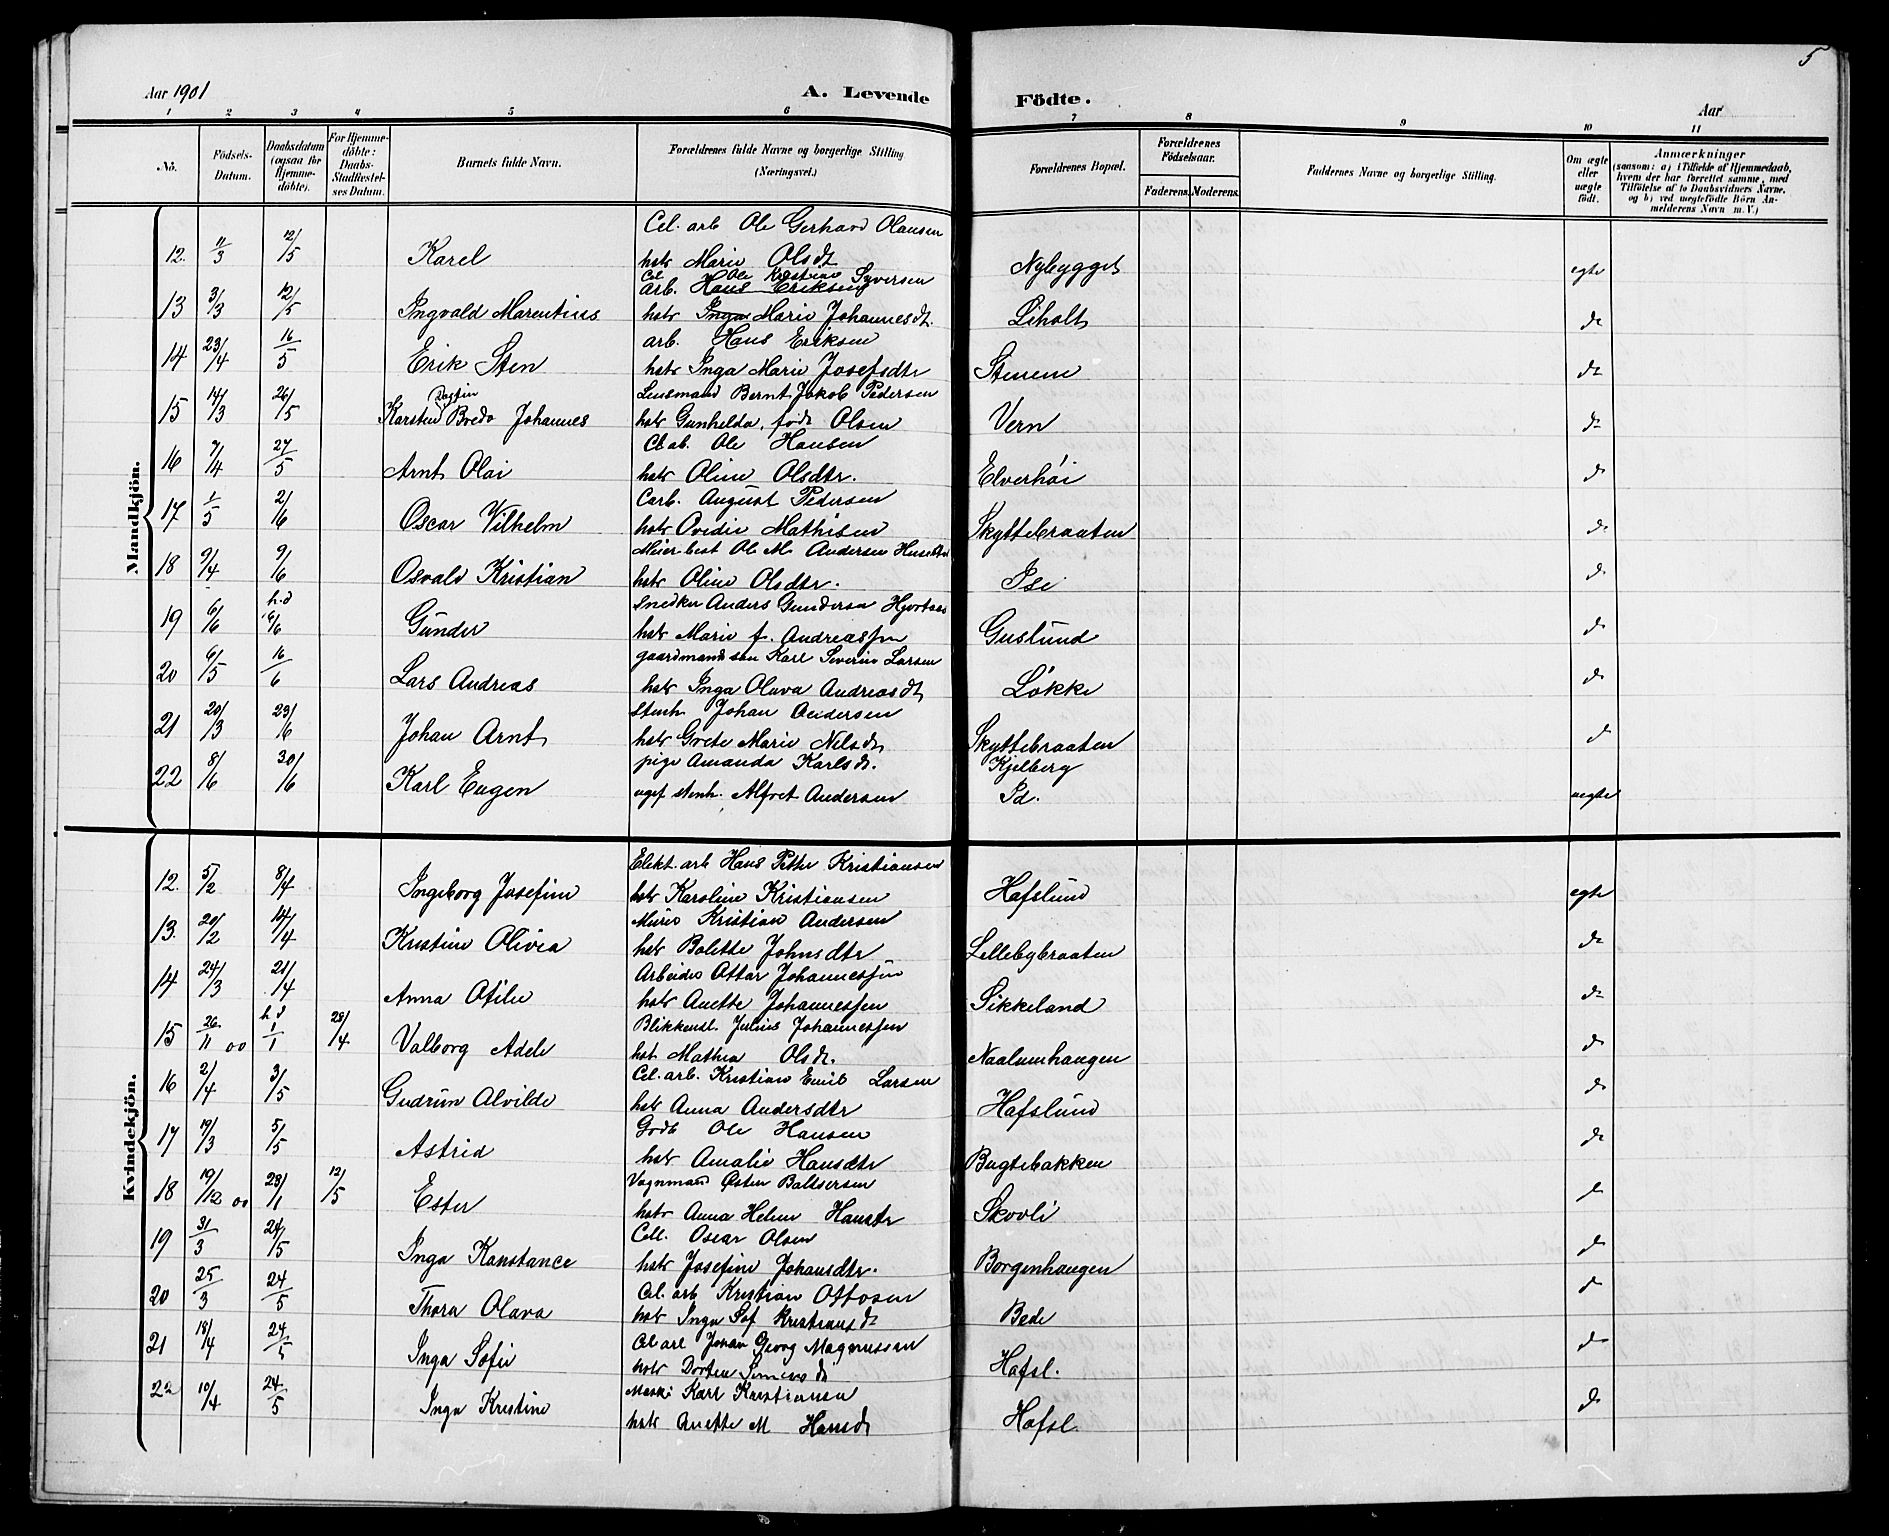 5
Aar 1901
A. Levende Födte.
Aar
1 2 3 4 5 6 7 8 9 10 11
No.
Födsels-Datum.
Daabsdatum (ogsaa for Hjemme-döbte).
For Hjemme-döbte: Daabs-Stadfæstel-ses Datum.
Barnets fulde Navn.
Forældrenes fulde Navne og borgerlige Stilling (Næringsvei.)
Forældrenes Bopæl.
Forældrenes Födselsaar.
Faderens. Moderens.
Faddernes Navne og borgerlige Stilling.
Om ægte eller uægte födt.
Anmærkninger
(saasom: a) i Tilfælde af Hjemmedaab,
hvem der har forrettet samme, med
Tilföielse af to Daabsvidners Navne,
og b) ved uægtefödte Börn An-
melderens Navn m. V.)
Mandkjön.
Cel. arb Ole Gerhard Olausen
12. 11/3 12/5 Karel hstr Marie Olsdt Nybygget egte
Cel. Ole Kristian Syversen
arb. Hans Eriksen
13 3/3 12/5 Ingvald Marentius hstr Inga Marie Johannesdt. Liholt do
arb. Hans Eriksen
14 23/4 16/5 Erik Sten hstr Inga Marie Josefsdtr Stenene do
Lensmand Bernt Jakob Pedersen
Dagfin
15 14/3 26/5 Karsten Bredo Johannes hstr Gunhelda, födt Olsen Vern do
Cl. ab. Ole Hansen
16 7/4 27/5 Arnt Olai hstr Oline Olsdtr. Elverhöi do
Carb. August Pedersen
17 1/5 2/6 Oscar Vilhelm hstr Ovidie Mathisen Skyttebraaten do
Meier best Ole M. Andersen
18 9/4 9/6 Osvald Kristian hstr Oline Olsdtr. Ise do
h.d
Snedker Anders Gundersen
19 6/6 16/6 Gunder hstr Marie f. Andreassen Guslund do
gaardmandssøn Karl Severin Larsen
20 6/5 16/6 Lars Andreas hstr Inga Olava Andreasdt Løkke do
Stenh. Johan Andersen
21 20/3 23/6 Johan Arnt hstr Grete Marie Nilsdt Skyttebraaten do
pige Amanda Karlsdt. Kjelberg
22 8/6 30/6 Karl Eugen ugef stenh. Alfret Andersen Id. uegte
Kvindekjön.
Elekt. arb Hans Petter Kristiansen
12. 5/2 8/4 Ingeborg Josefine hstr Karoline Kristiansen Hafslund egte
Murer Kristian Andersen
13. 20/2 14/4 Kristine Olivia hstr Bolette Johnsdtr Lillebybraaten do
Arbeider Ottar Johannessen
14 24/3 21/4 Anna Otilie hstr Anette Johannessen Sikkeland do
h.d
Blikkensl. Julius Johannessen
15 26/11 00 1/1 28/4 Valborg Adele hst. Mathea Olsdt. Naalumhaugen do
Cel. arb. Kristian Emil Larsen
16 2/4 3/5 Gudrun Alvilde hstr Anna Andersdtr Hafslund do
Grdb Ole Hansen
17 19/3 5/5 Astrid hstr Amalie Hansdtr Bugtebakken do
Vognmand Østen Baltsersen
18 19/12 00 28/1 12/5 Ester hstr Anna Helene Hansdtr Skovli do
Cell. Oscar Olsen
19 31/3 24/5 Inga Konstance hstr Josefine Johansdtr. Borgenhaugen do
Cel. arb Kristian Ottosen
20 25/3 24/5 Thora Olava hstr Inga Sof Kristiansdt Bede do
Cel arb Johan Georg Magnussen
21 18/4 24/5 Inga Sofie hstr Dortea Hafsl. do
Maski Karl Kristiansen
22 10/4 24/5 Inga Kristine hstr Anette M Hansdt Hafsl. do